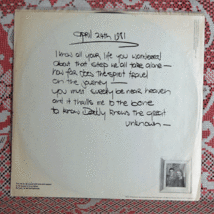 April 24th, 1981
I know all your life you wondered
about that step we all take alone —
how far does the spirit travel
on the journey —
you must surely be near heaven
and it thrills me to the bone
to know Daddy knows the great
unknown —